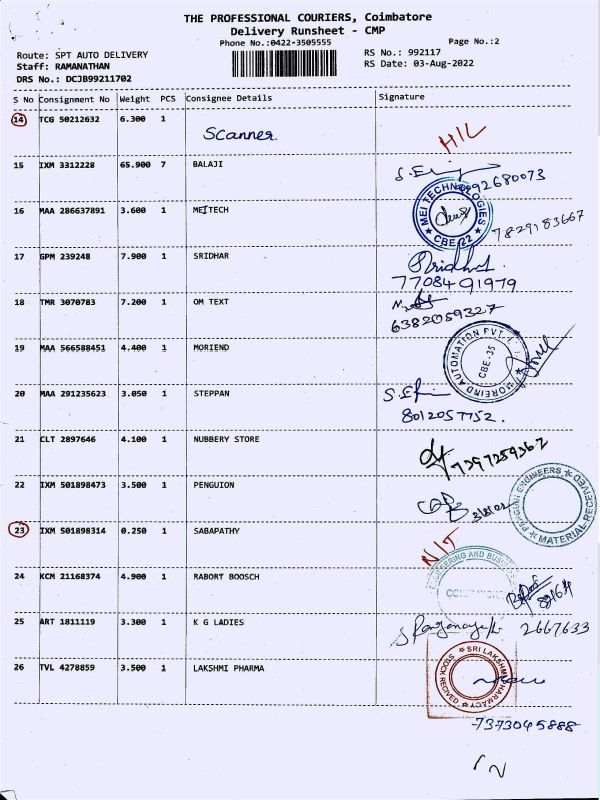 THE PROFESSIONAL COURIERS, Coimbatore
Delivery Runsheet - CMP
Phone No.:0422-3505555
Page No.:2
Route: SPT AUTO DELIVERY
RS No.: 992117
Staff: RAMANATHAN
RS Date: 03-Aug-2022
DRS No.: DCJB99211702
S No Consignment No Weight PCS Consignee Details Signature
14 TCG 50212632 6.300 1 Scanner HIL
15 IXM 3312228 65.900 7 BALAJI
16 MAA 286637891 3.600 1 MEITECH
MEI TECHNOLOGIES
CBE-22
7829183667
17 GPM 239248 7.900 1 SRIDHAR
7708491979
18 TMR 3070783 7.200 1 OM TEXT
6382059327
19 MAA 566588451 4.400 1 MORIEND
MOREIND AUTOMATION PVT.
CBE-35
20 MAA 291235623 3.050 1 STEPPAN
8012057752.
21 CLT 2897646 4.100 1 NUBBERY STORE
7397259362
22 IXM 501898473 3.500 1 PENGUION
ENGINEERS
MATERIAL RECEIVED
23 IXM 501898314 0.250 1 SABAPATHY N/T
24 KCM 21168374 4.900 1 RABORT BOOSCH
25 ART 1811119 3.300 1 K G LADIES
2667633
26 TVL 4278859 3.500 1 LAKSHMI PHARMA
SRI LAKSHMI PHARMACY
STOCK RECIVED
7373045888